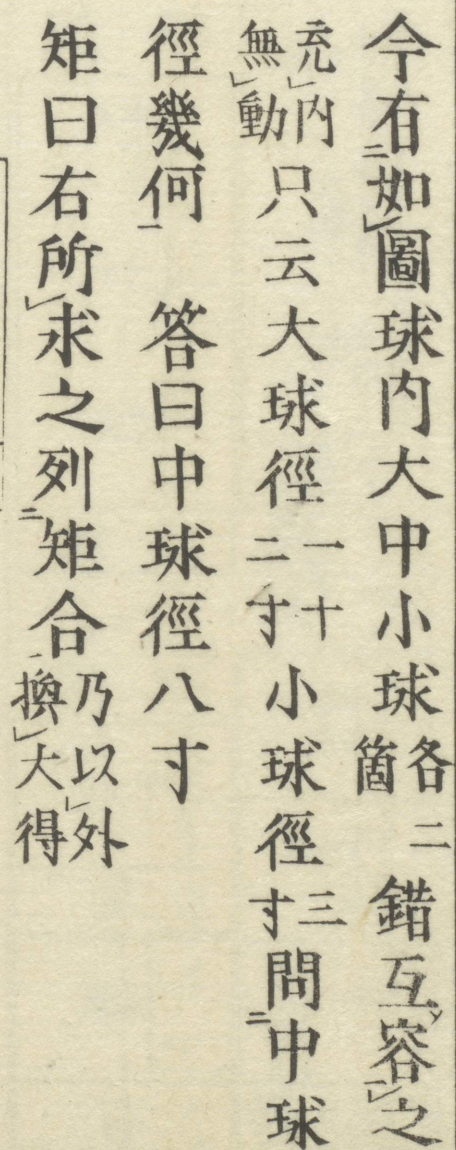 今有如圖球内大中小球各二箇錯互容之
充内無動只云大球徑一十二寸小球徑三寸問中球
徑幾何　答曰中球徑八寸
矩曰右所求之列矩合乃以外換大得